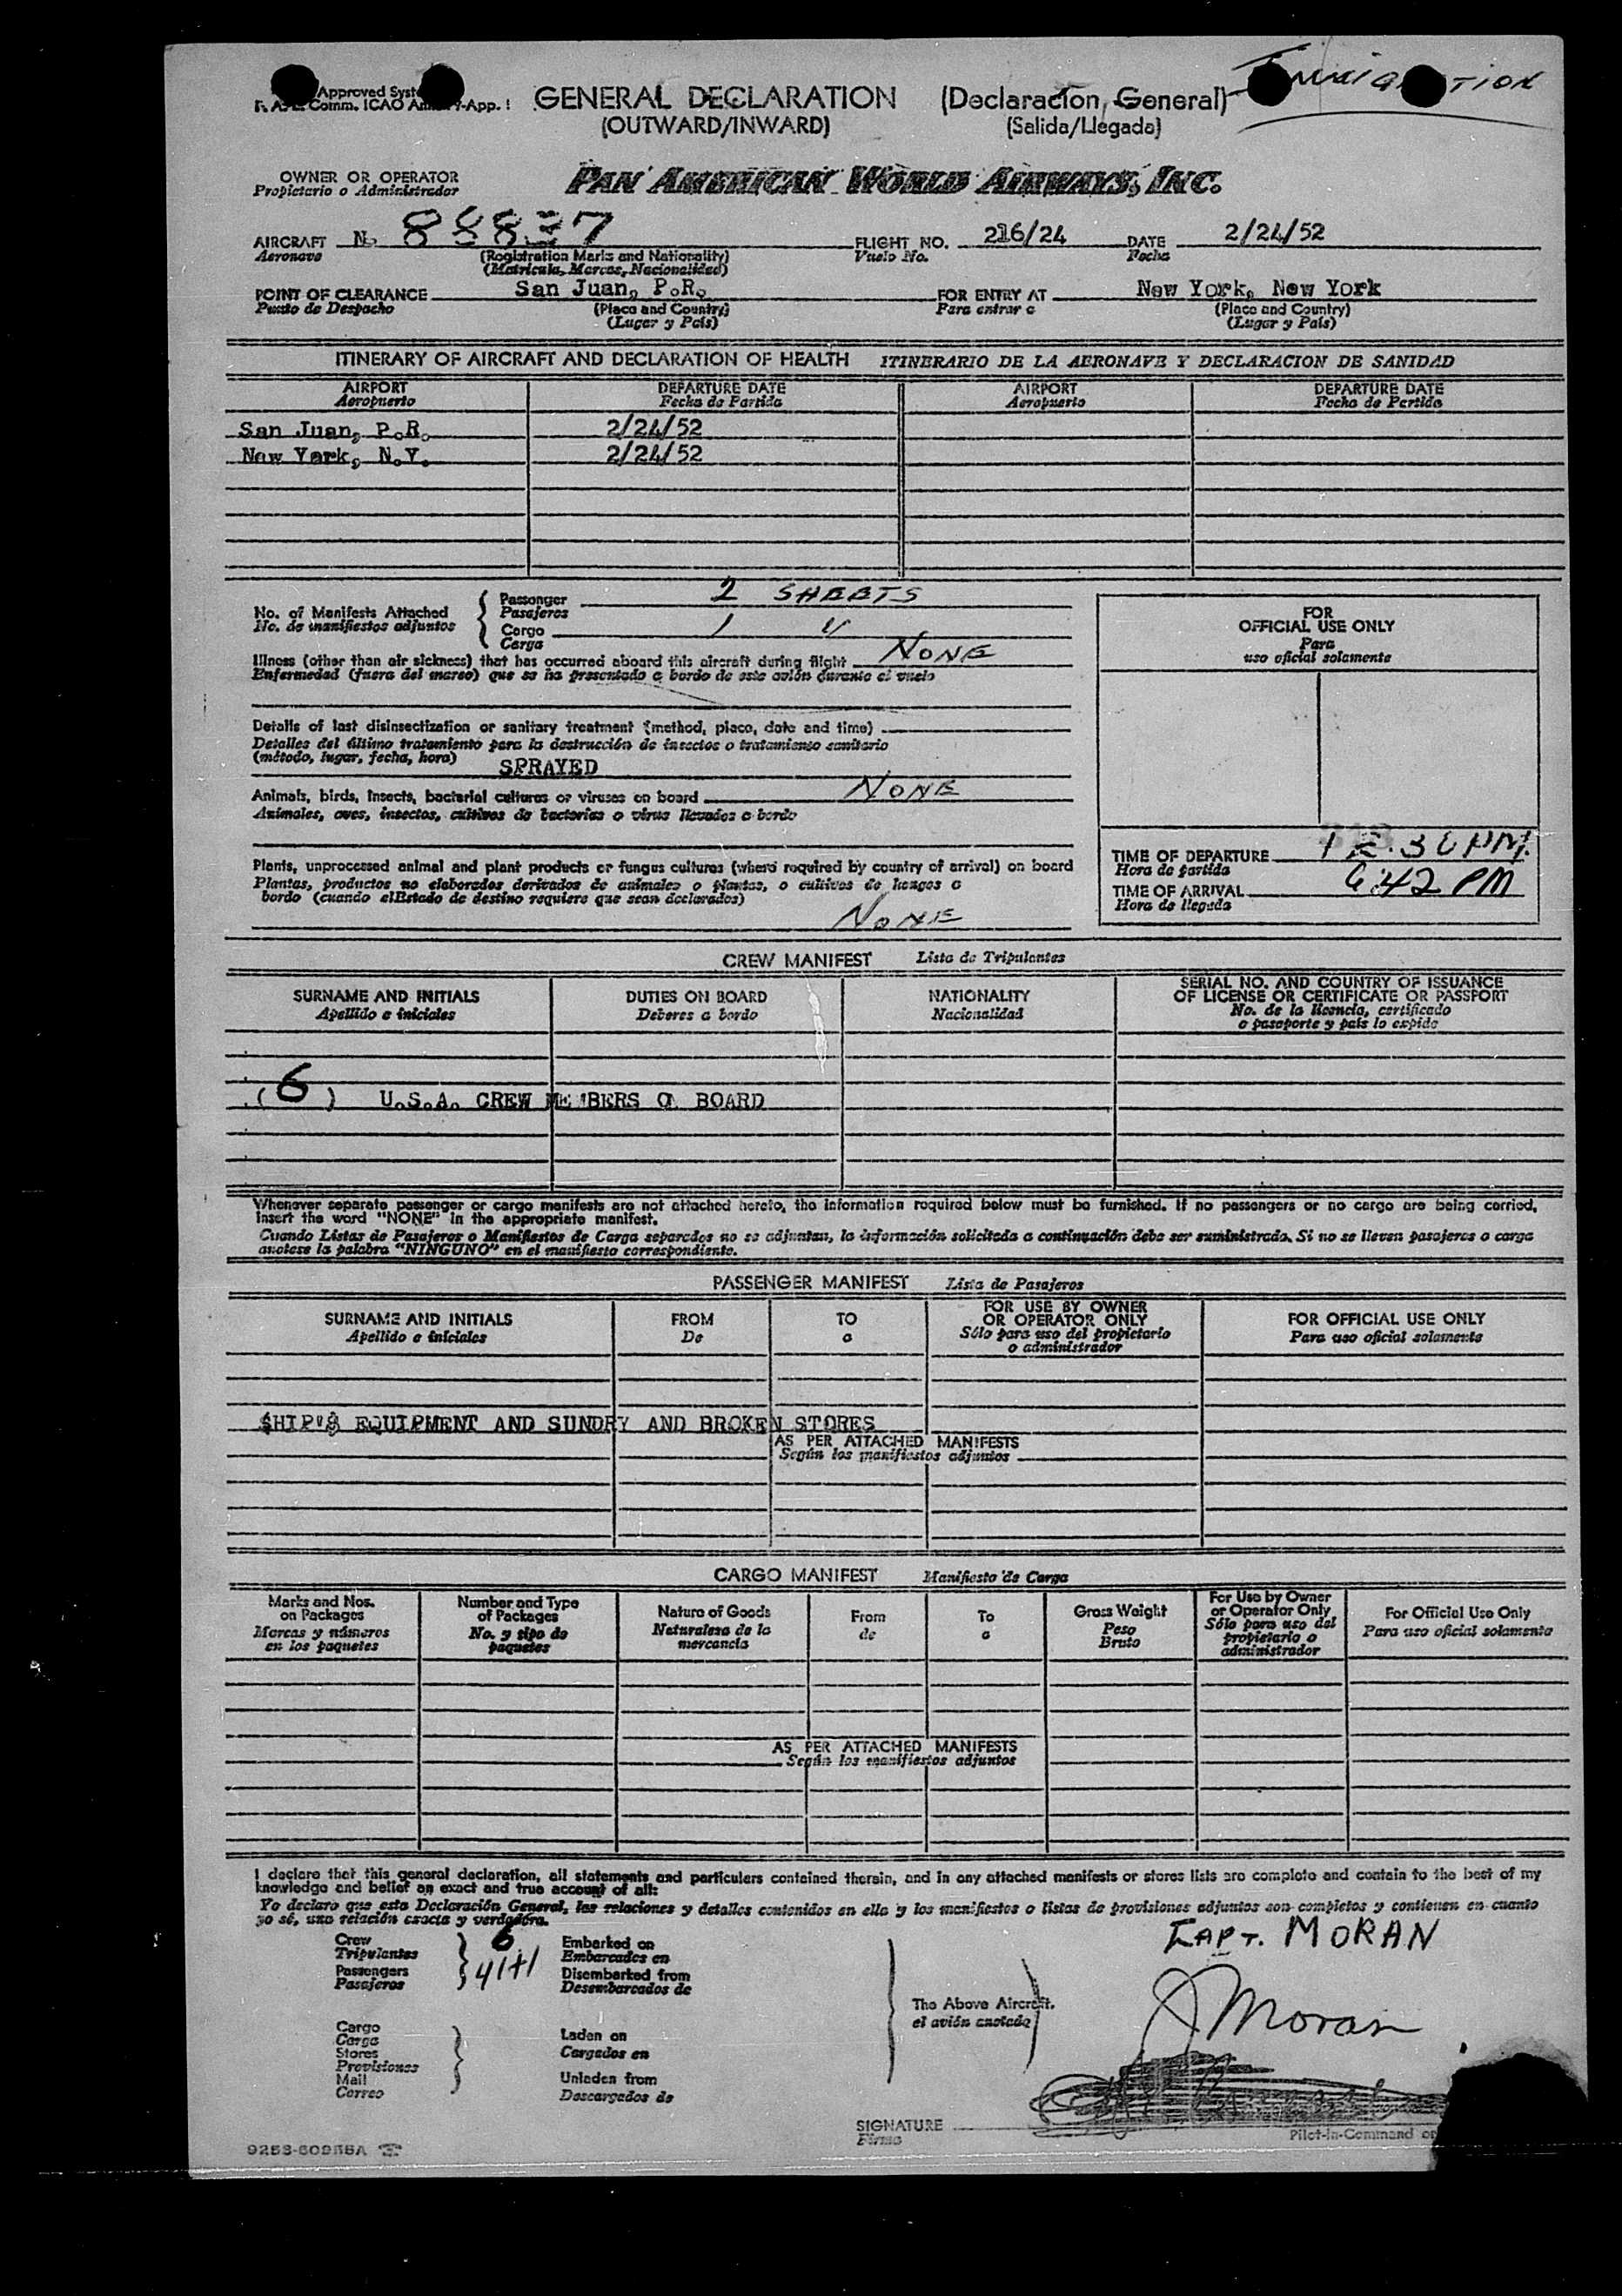 Approved
Comm. ICAO
-App. 1
GENERAL DECLARATION (Declaracion General)
(OUTWARD/INWARD) (Salida/Llegada)
OWNER OR OPERATOR
Propietario o Administrador
PAN AMERICAN WORLD AIRWAYS, INC.
AIRCRAFT N 88837 FLIGHT NO. 216/24 DATE 2/24/52
Aeronave (Registration Marks and Nationality) Vuelo No. Fecha
(Matricula, Marcas, Nacionalidad)
POINT OF CLEARANCE San Juan, P.R. FOR ENTRY AT New York, New York
Punto de Despacho (Place and Country) Para entrar a (Place and Country)
(Lugar y País) (Lugar y País)
ITINERARY OF AIRCRAFT AND DECLARATION OF HEALTH ITINERARIO DE LA AERONAVE Y DECLARACION DE SANIDAD
AIRPORT DEPARTURE DATE AIRPORT DEPARTURE DATE
Aeropuerto Fecha de Partida Aeropuerto Fecha de Partida
San Juan, P.R. 2/24/52
New York, N.Y. 2/24/52
No. of Manifests Attached
No. de manifiestos adjuntos
Passenger 2 SHEETS
Pasajeros
Cargo 1 "
Carga
Illness (other than air sickness) that has occurred aboard this aircraft during flight NONE
Enfermedad (fuera del mareo) que se ha presentado a bordo de este avión durante el vuelo
Details of last disinsectization or sanitary treatment (method, place, date and time)
Detalles del último tratamiento para la destrucción de insectos o tratamiento sanitario
(método, lugar, fecha, hora) SPRAYED
Animals, birds, insects, bacterial cultures or viruses on board NONE
Animales, aves, insectos, cultivos de bacterias o virus llevados a bordo
Plants, unprocessed animal and plant products or fungus cultures (where required by country of arrival) on board
Plantas, productos no elaborados derivados de animales o plantas, o cultivos de hongos a
bordo (cuando elEstado de destino requiere que sean declarados)
NONE
FOR
OFFICIAL USE ONLY
Para
uso oficial solamente
TIME OF DEPARTURE 12:30 PM
Hora de partida
TIME OF ARRIVAL 6:42 PM
Hora de llegada
CREW MANIFEST Lista de Tripulantes
SURNAME AND INITIALS DUTIES ON BOARD NATIONALITY SERIAL NO. AND COUNTRY OF ISSUANCE
OF LICENSE OR CERTIFICATE OR PASSPORT
Apellido e iniciales Deberes a bordo Nacionalidad No. de la licencia, certificado
o pasaporte y país lo expide
(6) U.S.A. CREW MEMBERS ON BOARD
Whenever separate passenger or cargo manifests are not attached hereto, the information required below must be furnished. If no passengers or no cargo are being carried,
insert the word "NONE" in the appropriate manifest.
Cuando Listas de Pasajeros o Manifiestos de Carga separados no se adjuntan, la información solicitada a continuación debe ser suministrada. Si no se lleven pasajeros o carga
anotese la palabra "NINGUNO" en el manifiesto correspondiente.
PASSENGER MANIFEST Lista de Pasajeros
SURNAME AND INITIALS FROM TO FOR USE BY OWNER
OR OPERATOR ONLY FOR OFFICIAL USE ONLY
Apellido e iniciales De a Sólo para uso del propietario
o administrador Para uso oficial solamente
SHIP'S EQUIPMENT AND SUNDRY AND BROKEN STORES
AS PER ATTACHED MANIFESTS
Según los manifiestos adjuntos
CARGO MANIFEST Manifiesto de Carga
Marks and Nos.
on Packages
Marcas y números
en los paquetes
Number and Type
of Packages
No. y tipo de
paquetes
Nature of Goods
Naturaleza de la
mercancía
From
de
To
a
Gross Weight
Peso
Bruto
For Use by Owner
or Operator Only
Sólo para uso del
propietario o
administrador
For Official Use Only
Para uso oficial solamente
AS PER ATTACHED MANIFESTS
Según los manifiestos adjuntos
I declare that this general declaration, all statements and particulars contained therein, and in any attached manifests or stores lists are complete and contain to the best of my
knowledge and belief an exact and true account of all:
Yo declaro que esta Declaración General, las relaciones y detalles contenidos en ella y los manifiestos o listas de provisiones adjuntos son completos y contienen en cuanto
yo sé, una relación exacta y verdadera.
Crew 6 Embarked on
Tripulantes Embarcados en
Passengers 41+1 Disembarked from
Pasajeros Desembarcados de
Cargo
Carga
Stores
Provisiones
Mail
Correo
Laden on
Cargados en
Unladen from
Descargados de
The Above Aircraft.
el avión anotado
CAPT. MORAN
J Moran
SIGNATURE
Firma
Pilot-in-Command or